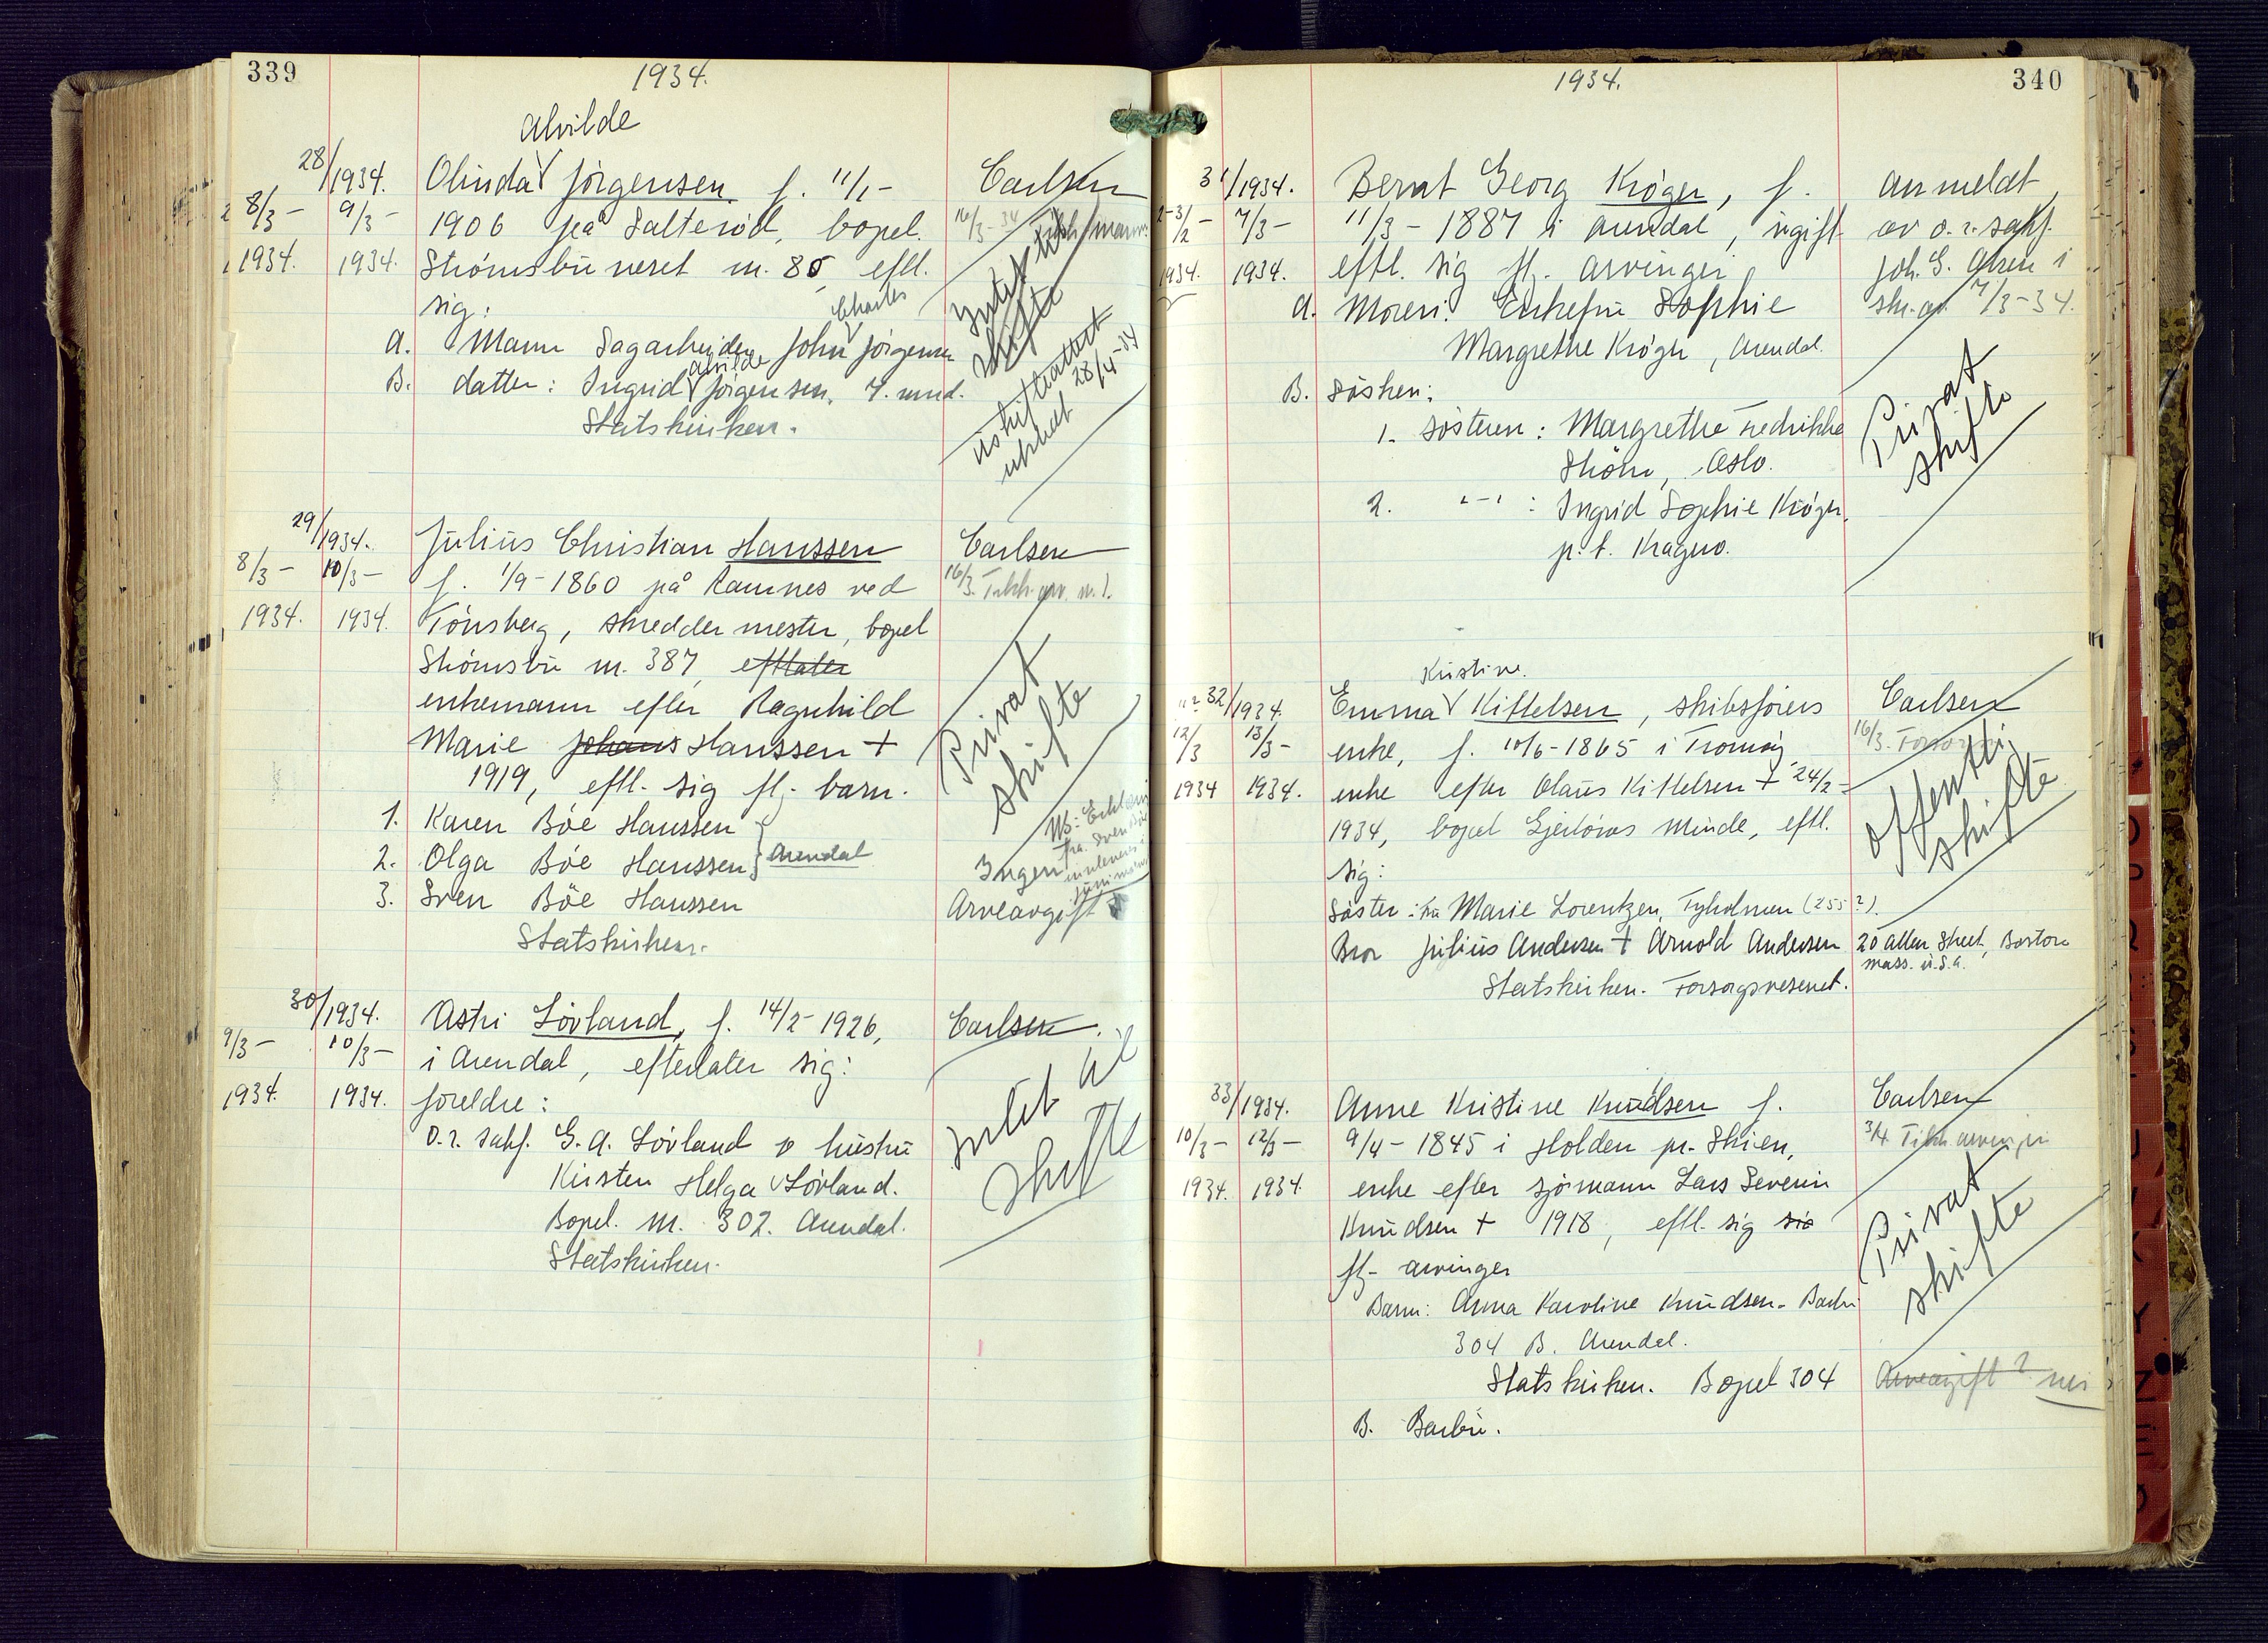 339
1934.
Alvilde
28/1934.
Olinda Jörgensen f. 11/1-
Carlsen
8/3- 9/3-
1906 på Salteröd, bopel.
16/3-34
1934. 1934.
Strömsbuneset m. 85, eftl.
sig:
Charles
Intet til
skifte
a. Mann Sagarbeider John Jörgensen
Alvilde
B. datter: Ingrid Jörgensen, 7. mnd.
Statskirken.
uskifteattest
utstedt 28/4-34
29/1934.
Julius Christian Hanssen
Carlsen
8/3- 10/3-
f. 1/9-1860 på Ramnes ved
16/3.
1934. 1934.
Tönsberg, skreddermester, bopel
Strömsbu m. 387, efterlater
enkemann efter Ragnhild
Marie Johans Hanssen +
1919, eftl. sig flg. barn.
Privat
skifte
1. Karen Böe Hanssen
2. Olga Böe Hanssen } Arendal
3. Sven Böe Hanssen
Statskirken.
Ingen
Arveavgift
30/1934.
Astri Lövland, f. 14/2-1926,
Carlsen.
9/3- 10/3-
i Arendal, efterlater sig:
1934. 1934.
foreldre:
o.r. sakf. G. A. Lövland o hustru
Kirsten Helga Lövland.
Bopel. m. 302. Arendal.
Statskirken.
Intet til
skifte
1934.
340
31/1934.
Bernt Georg Krögh, f.
anmeldt
2-3/2- 7/3-
11/3-1887 i Arendal, ugift
av o.r. sakf.
1934. 1934.
eftl. sig flg. arvinger
Joh. G. Olsen i
a. Moren: Enkefru Sophie
skr. av 7/3-34.
Margrethe Krögh, Arendal.
B. Sösken:
1. Sösteren: Margrethe Fredrikke
Ström, Oslo.
2. -"- : Ingrid Sophie Krögh,
p.t. Kragerö.
Privat
skifte
Kristine.
32/1934.
Emma Kittelsen, skibsförers
Carlsen
12/3 13/3-
enke, f. 10/6-1865 i Tromöy
16/3.
1934 1934.
enke efter Olaus Kittelsen + 24/2-
1934, bopel Gjerlöws Minde, eftl.
sig:
Offentlig
skifte
Söster: fru Marie Lorentzen, Tyholmen (255?).
Bror Julius Andersen + Arnold Andersen 20 Allen Street, Boston
Mass. U.S.A.
Statskirken. Forsorgsvesenet.
33/1934.
Anne Kristine Knudsen f.
Carlsen
10/3- 12/3-
9/4-1845 i Holden pr. Skien,
3/4 Tilkn arvingen
1934. 1934
enke efter sjömann Lars Severin
Knudsen + 1918, eftl. sig sig
flg- arvinger
Privat
skifte
Barn: Anna Karoline Knudsen. Barbu
304 B. Arendal.
Statskirken. Bopel 304
Arveavgift? nei
B. Barbu.